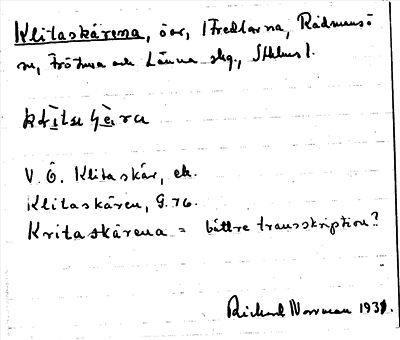 Klitaskärena, öar, i Fredlarna, Rådmansö
m, Frötuna och Länna skg., Sthlms l.
V. Ö. Klitaskär, ek.
Klitaskären, G. 76.
Kritaskärena = bättre transskription?
Rickard Norrman 1931.